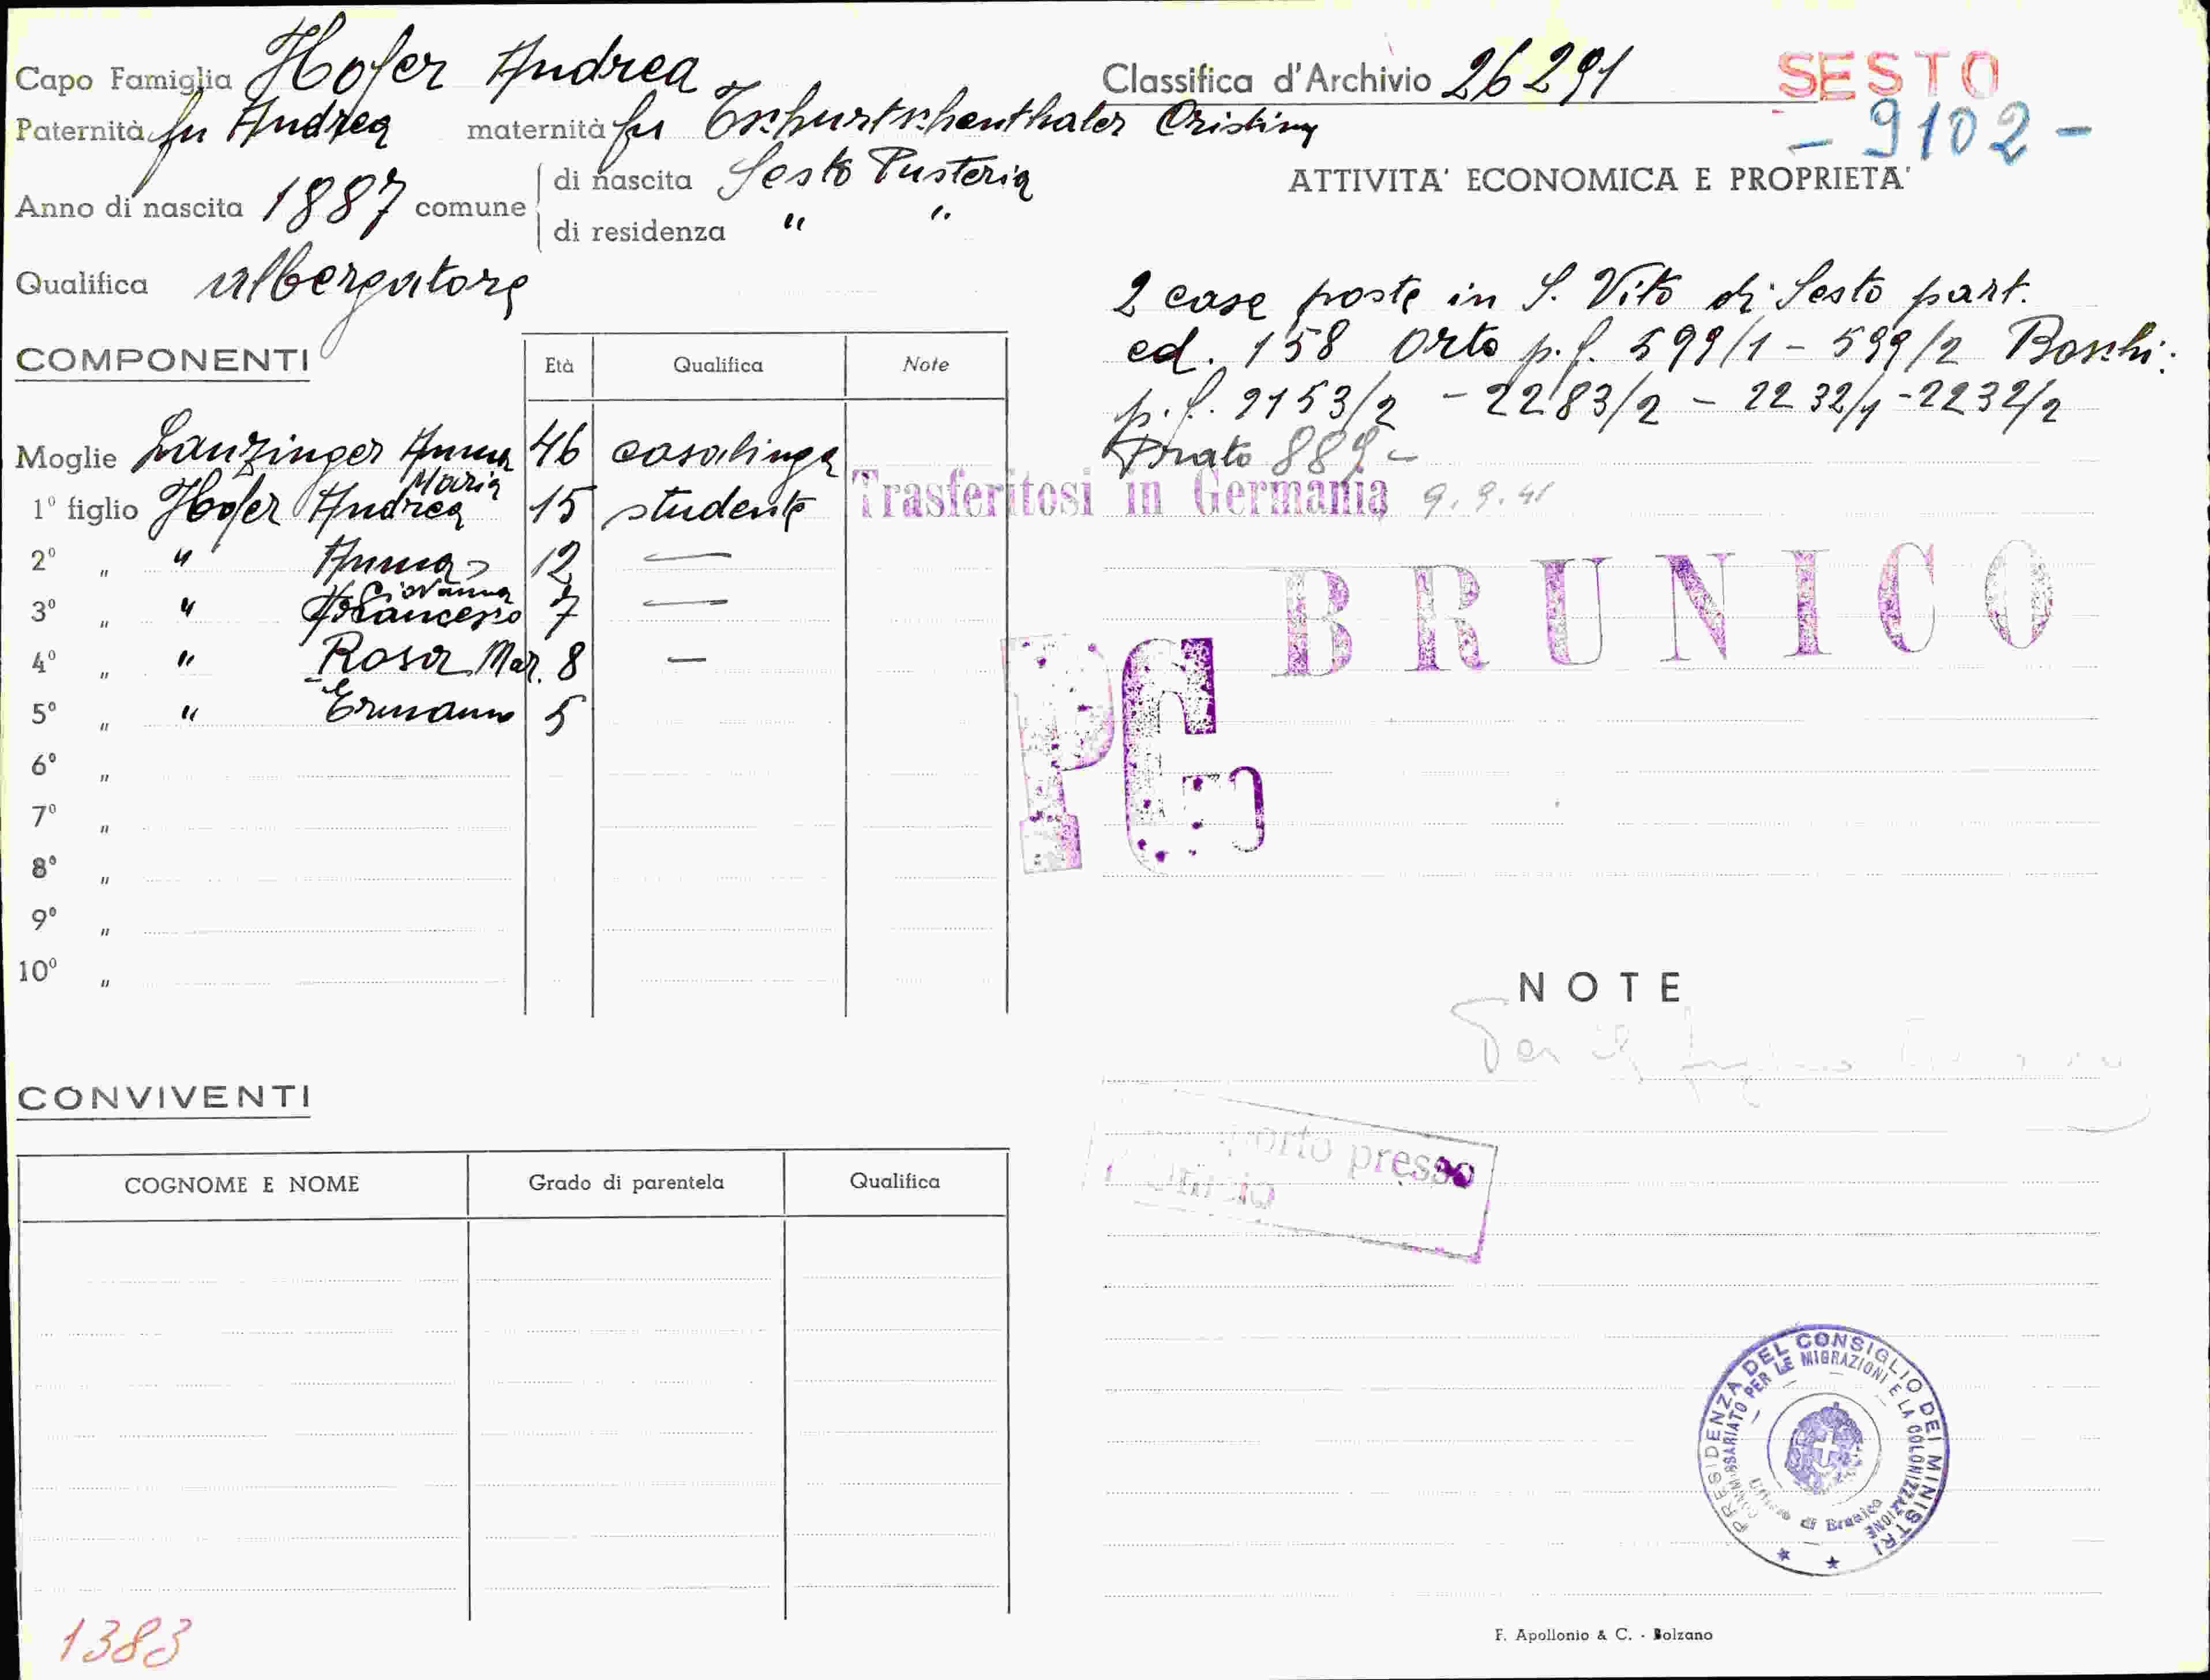 Capo Famiglia Hofer Andrea
Paternità fu Andrea maternità fu Tschurtschenthaler Cristina
Anno di nascita 1887 comune di nascita Sesto Pusteria
di residenza " "
Qualifica albergatore
COMPONENTI
Età Qualifica Note
Moglie Lanzinger Anna 46 casalinga
Maria
1° figlio Hofer Andrea 15 studente
2° " " Anna 12 —
Giovanna
3° " " Francesco 7 —
4° " " Rosa Mar. 8 —
5° " " Ermanno 5
6° "
7° "
8° "
9° "
10° "
CONVIVENTI
COGNOME E NOME Grado di parentela Qualifica
1383
Classifica d'Archivio 26291
SESTO
- 9102 -
ATTIVITA' ECONOMICA E PROPRIETA'
2 case poste in S. Vito di Sesto part.
ed. 158 Orto p.f. 599/1 - 599/2 Boschi:
p.f. 2153/2 - 2283/2 - 2232/1 - 2232/2
Prato 889 -
Trasferitosi in Germania 9.9.41
BRUNICO
PG
NOTE
Per il
presso
PRESIDENZA DEL CONSIGLIO DEI MINISTRI
COMMISSARIATO PER LE MIGRAZIONI E LA COLONIZZAZIONE
Ufficio di Brunico
F. Apollonio & C. - Bolzano